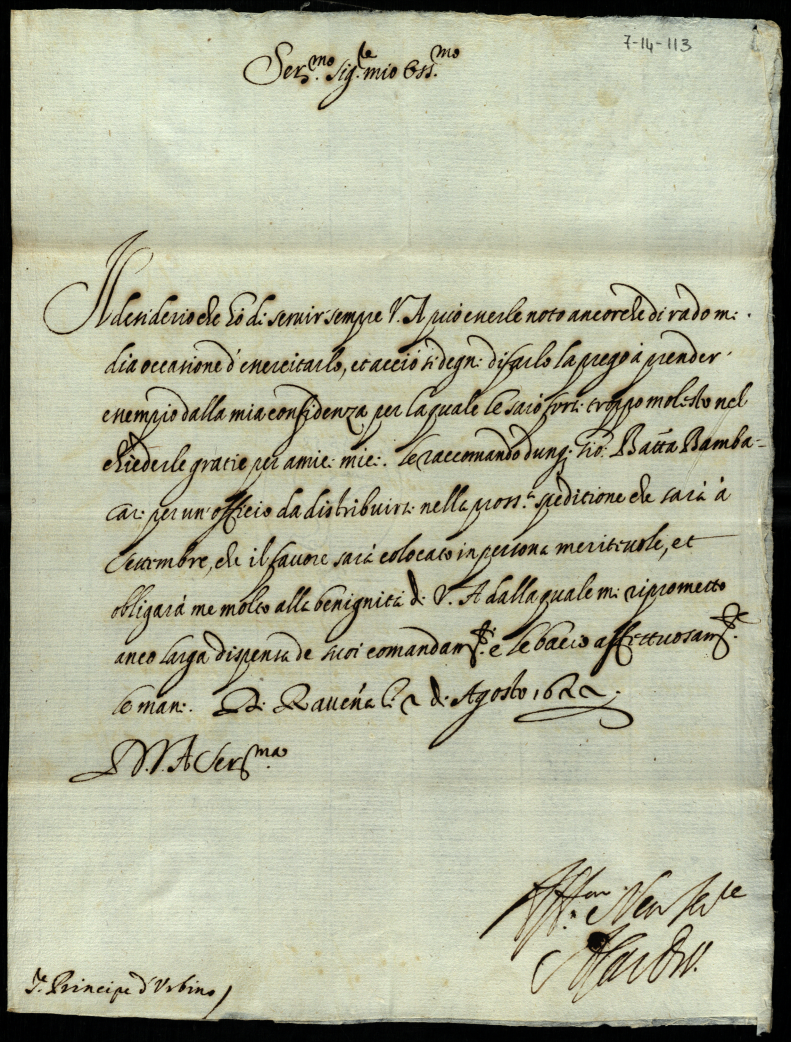 7-14-113
Ser.mo Sig.re mio oss.mo
Il desiderio che hò di servir sempre V. A può esserle noto ancorche di rado mi
dia occasione d'essercitarlo, et acciò si degni di farlo la prego à prender
essempio dalla mia confidenza, per la quale le sarò forsi troppo molesto nel
chiederle gratie per amici miei. Le raccomando dunq; Gio: Batta Bamba-
cari per un' officio da distribuirsi nella pross.a speditione che sarà à
Settembre, che il favore sarà colocato in persona meritevole, et
obligarà me molto alla benignità di V. A dalla quale mi riprometto
anco larga dispensa de suoi comandam.ti e le bacio affettuosam.te
le mani. Di Ravéna li 2 di Agosto 1622
D. V. A Ser.ma
Aff.mo
S.r Principe d'Urbino